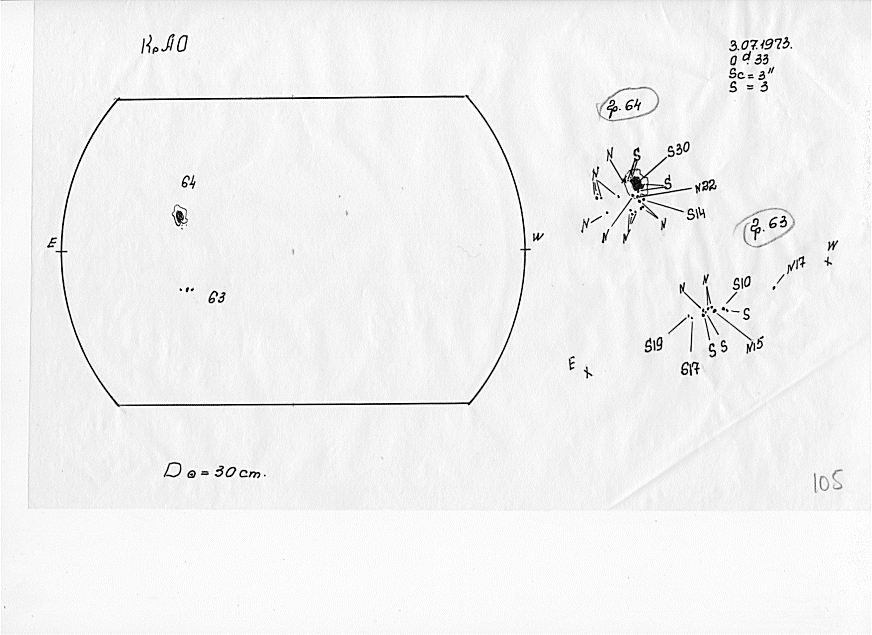 КрАО
3.07.1973.
0 d. 33
Sc = 3"
S = 3
гр. 64
N
S
S30
N
S
N22
S14
N
N
N
N
64
гр. 63
W
E
W
N17
N
N
S10
S
63
S19
S
S
N15
S17
E
D⊙ = 30 cm.
105